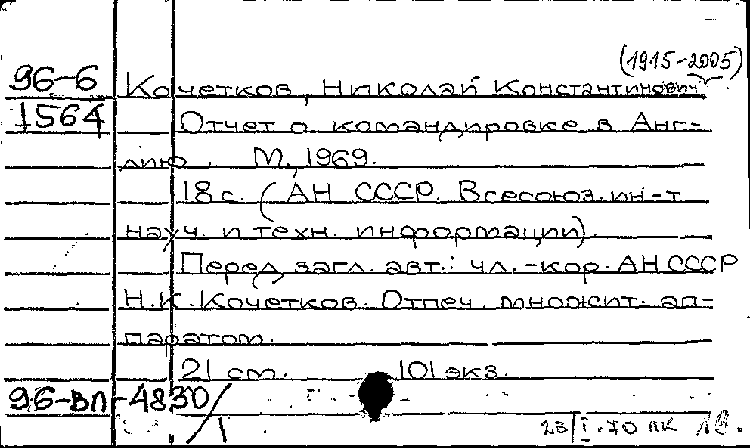 (1915-2005)
96-6 Кочетков, Николай Константинович
1564 Отчет о командировке в Анг-
лию. М., 1969.
18 с. (АН СССР. Всесоюз. ин-т
науч. и техн. информации).
Перед загл. авт.: чл.-кор. АН СССР
Н.К. Кочетков. Отпеч. множит. ап-
паратом.
21 см. 101 экз.
96-ВЛ-4830/1
23/I-70 ЛК